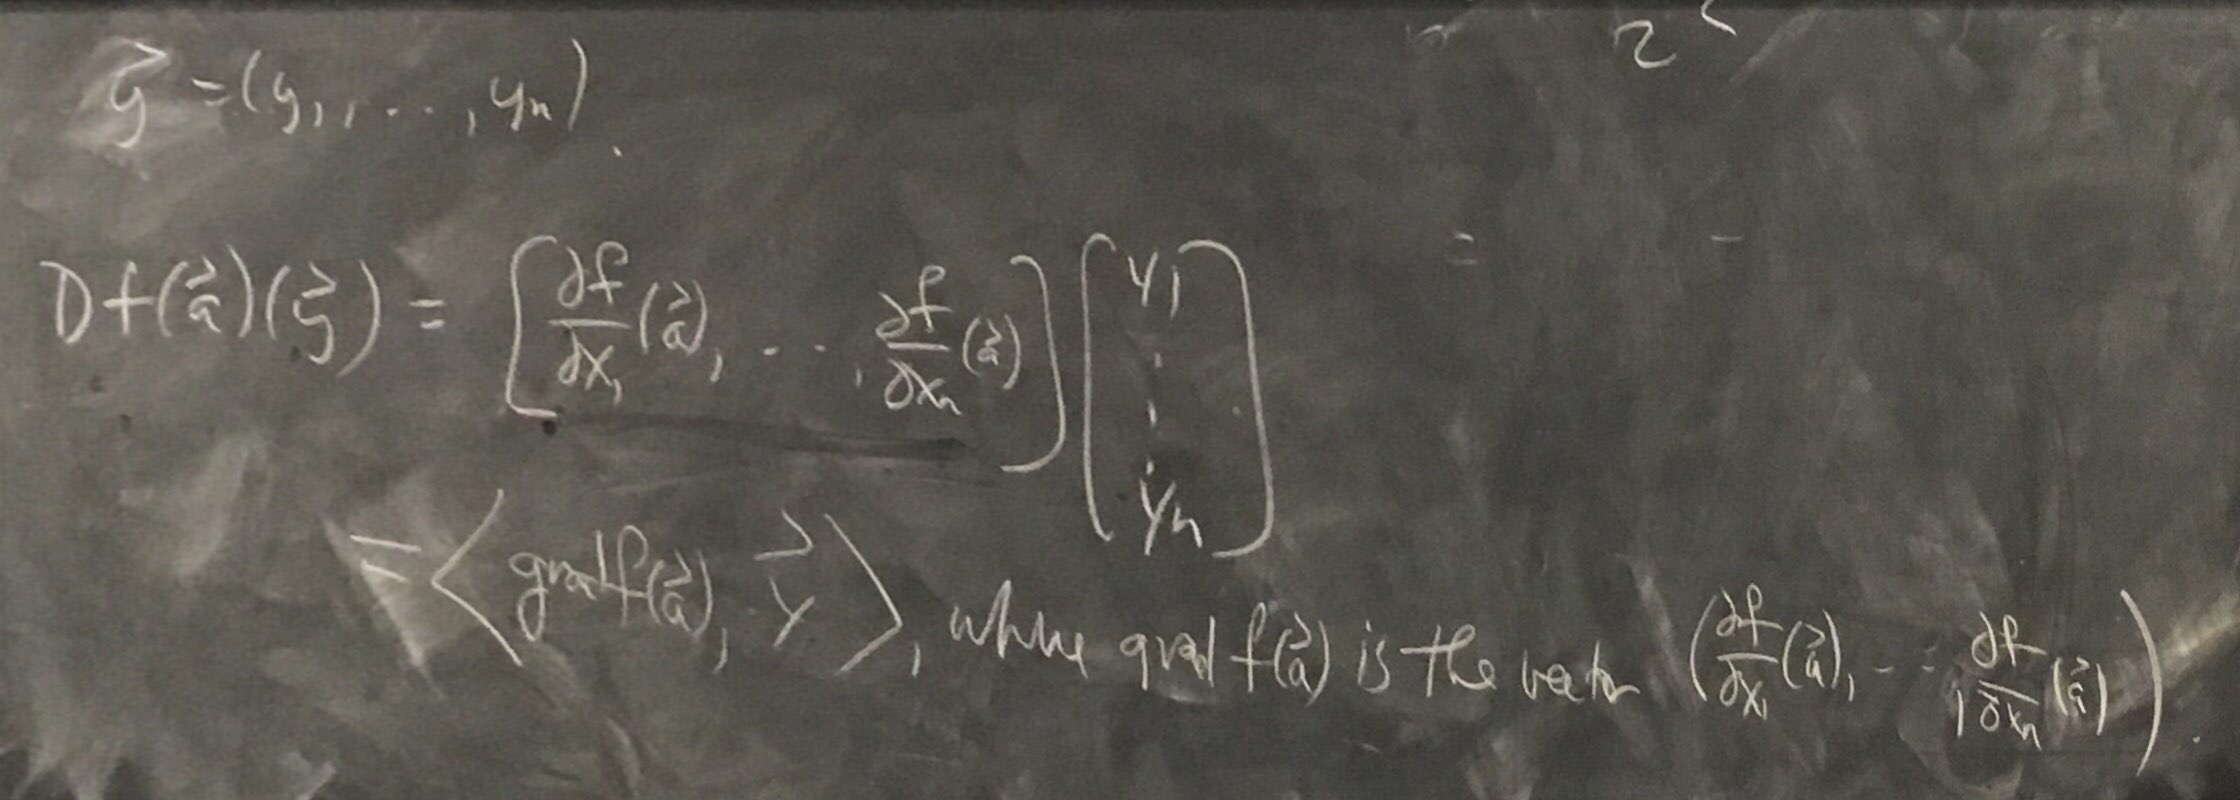 $\vec{y} = (y_1, \ldots, y_n)$.
$Df(\vec{a})(\vec{y}) = \left[ \frac{\partial f}{\partial x_1}(\vec{a}), \ldots, \frac{\partial f}{\partial x_n}(\vec{a}) \right] \begin{bmatrix} y_1 \\ \vdots \\ y_n \end{bmatrix}$
$= \left\langle \text{grad} f(\vec{a}), \vec{y} \right\rangle$, where grad $f(\vec{a})$ is the vector $\left( \frac{\partial f}{\partial x_1}(\vec{a}), \ldots, \frac{\partial f}{\partial x_n}(\vec{a}) \right)$.